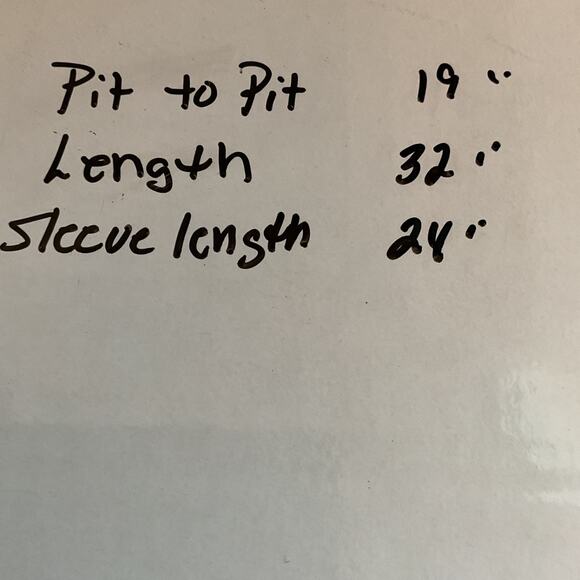 Pit to Pit 19"
Length 32"
Sleeve length 24"